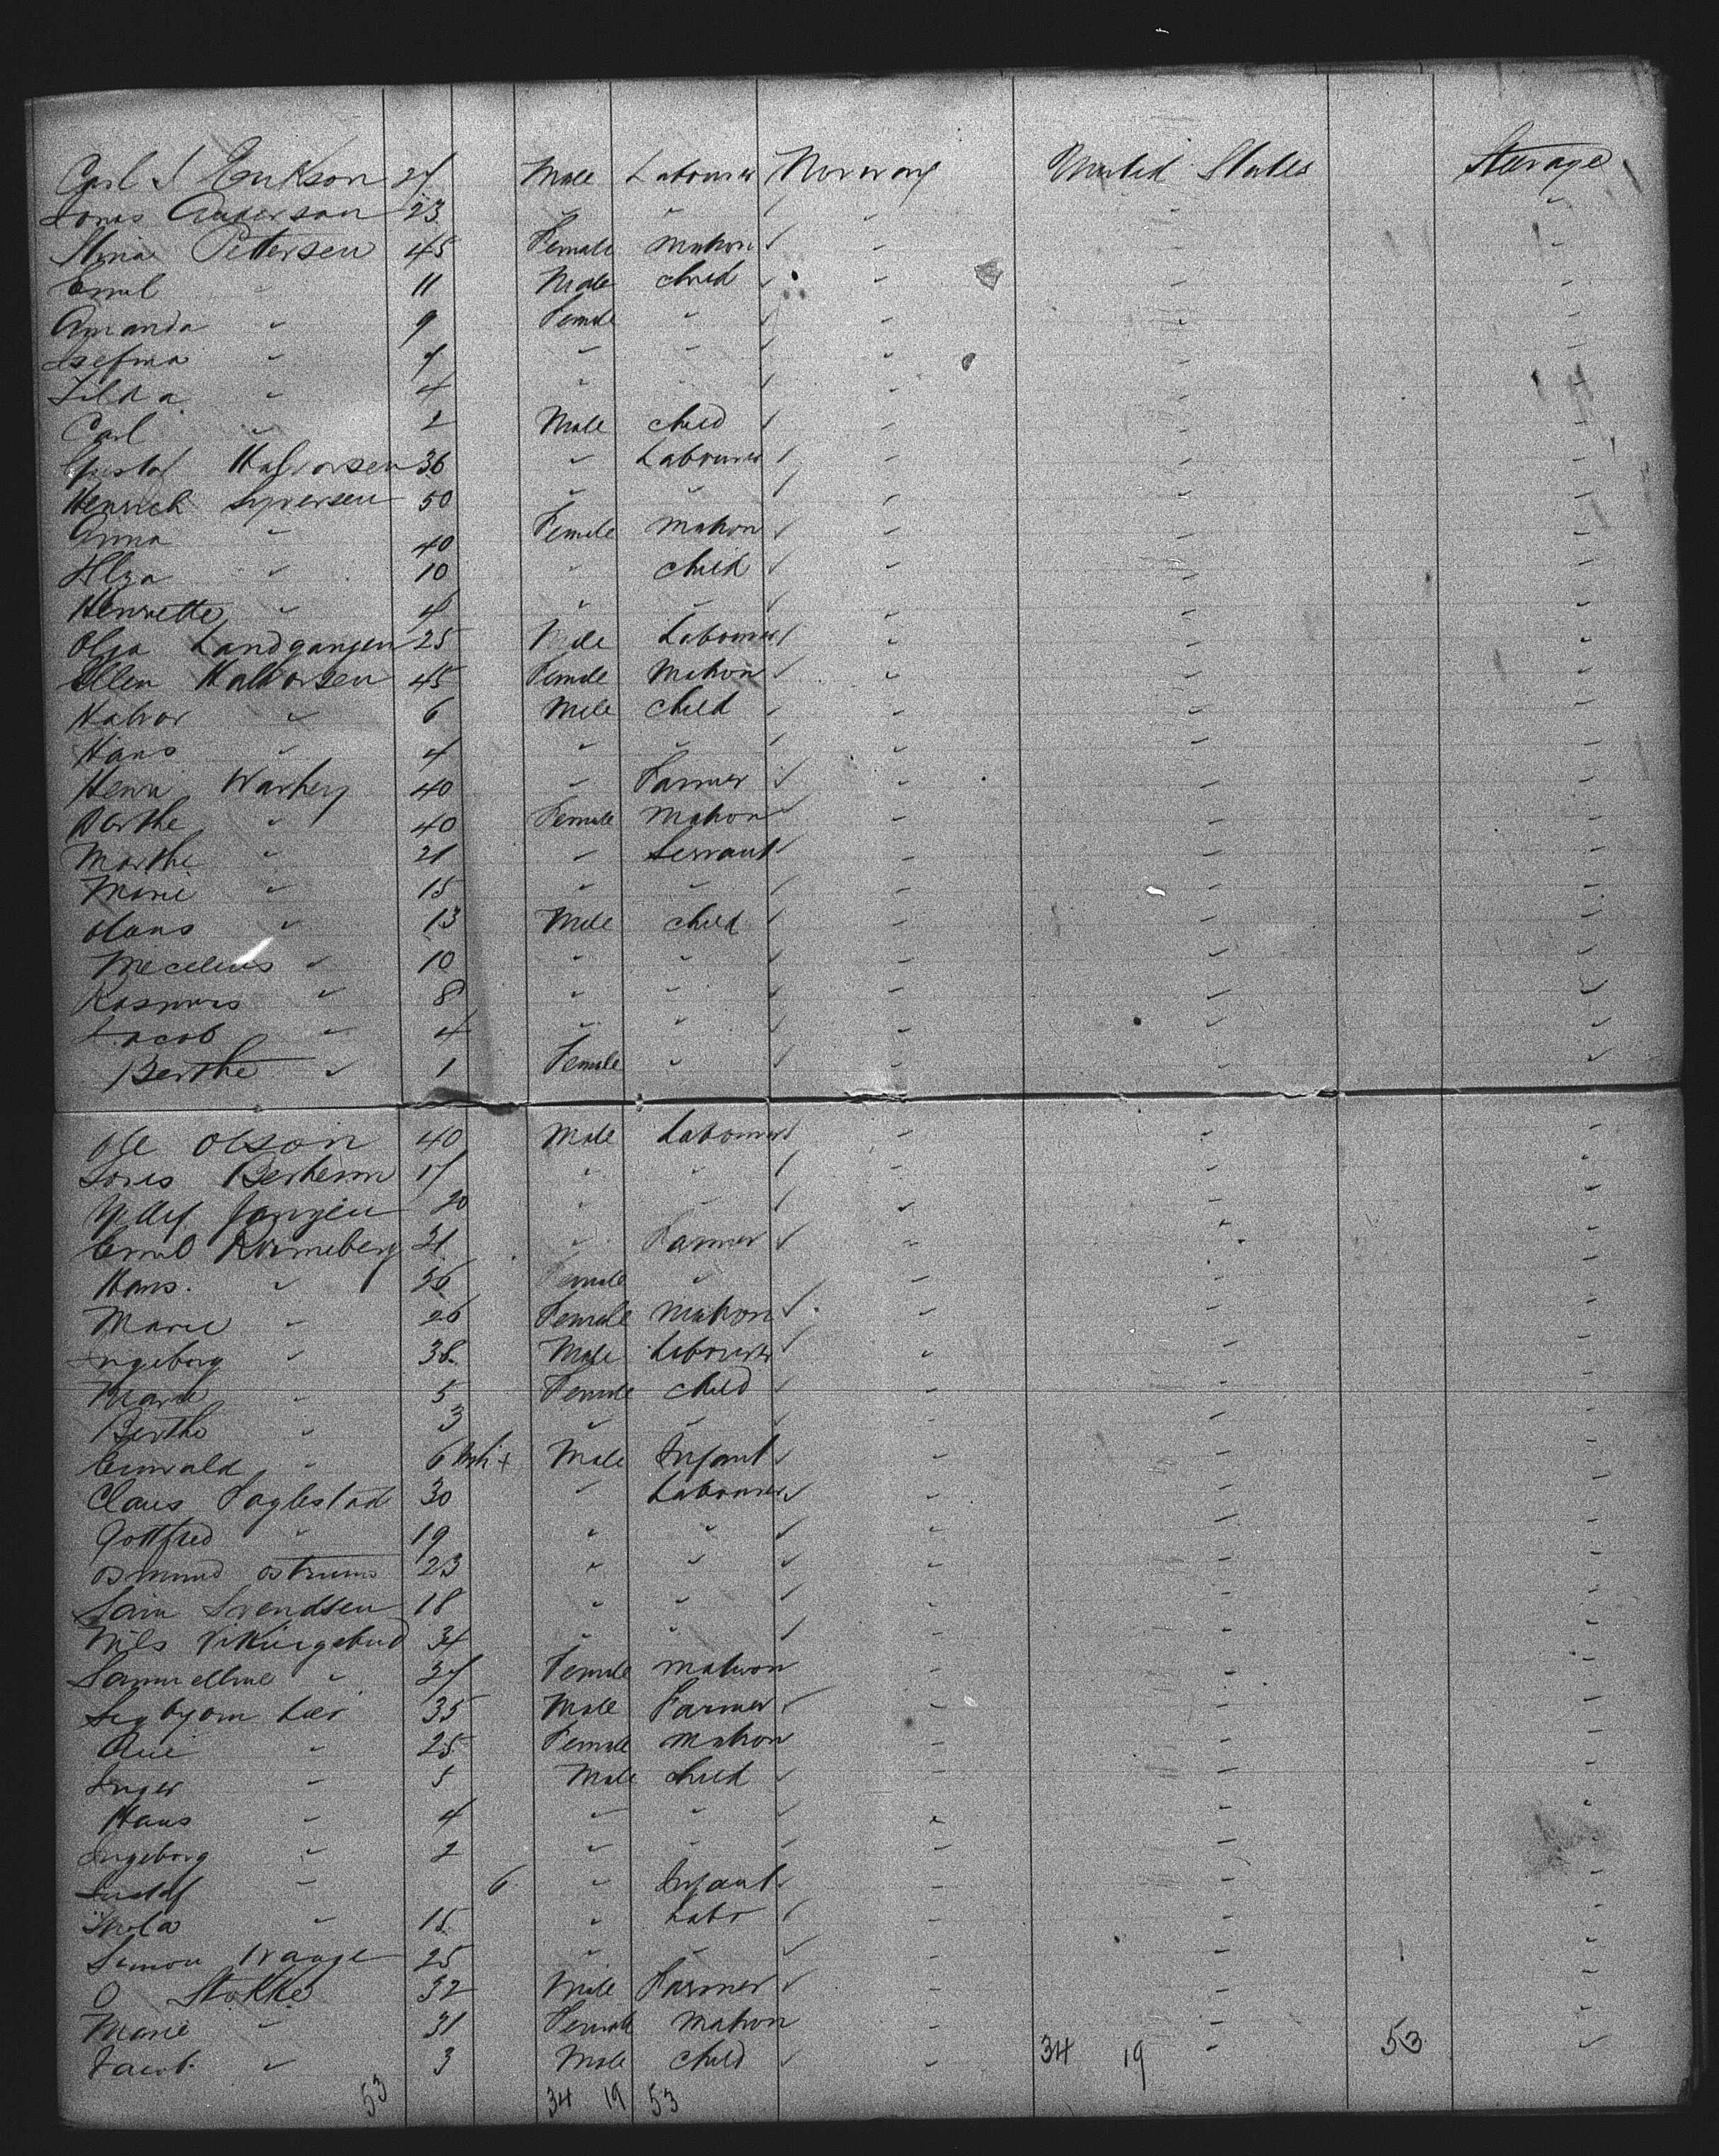 Carl J Erikson 27 Male Labourer Norway United States Steerage
Jonas Anderson 23 " " " " "
Stina Pettersen 45 Female Matron " " "
Emil " 11 Male child " " "
Amanda " 9 Female " " " "
Josefina " 7 " " " " "
Tilda " 4 " " " " "
Carl " 2 Male child " " "
Gustaf Halvorsen 36 " Labourer " " "
Henrich Syversen 50 " " " " "
Anna " 40 Female Matron " " "
Olga " 10 " child " " "
Henriette " 4 " " " " "
Olga Landgangen 25 Male Labourer " " "
Ellen Halvorsen 45 Female Matron " " "
Halvor " 6 Male Child " " "
Hans " 4 " " " " "
Henri 40 " Farmer " " "
Berthe " 40 Female Matron " " "
Marthe " 21 " Servant " " "
Marie " 15 " " " " "
Hans " 13 Male child " " "
" 10 " " " " "
Rasmus " 8 " " " " "
Jacob " 4 " " " " "
Berthe " 1 Female " " " "
Ole Olson 40 Male Labourer " " "
17 " " " " "
20 " " " " "
Emil Rönneberg 21 " Farmer " " "
Hans " 26 Female " " " "
Marie " 26 Female Matron " " "
Ingeborg " 38 Male Labourer " " "
Marie " 5 Female child " " "
Berthe " 3 " " " " "
" 6 Mth + Male Infant " " "
Claus Faglestad 30 " Labourer " " "
Gottfred " 19 " " " " "
Osmund 23 " " " " "
Svendsen 18 " " " " "
Nils Vikingstad 34 " " " " "
Samueline " 27 Female matron " " "
35 Male Farmer " " "
" 25 Female Matron " " "
Inger " 5 Male Child " " "
Hans " 4 " " " " "
Ingeborg " 2 " " " " "
Gustaf " 6 " Infant " " "
" 15 " Labr " " "
Simon 25 " " " " "
O Stokke 32 Male Farmer " " "
Marie " 31 Female Matron " " "
Jacob " 3 Male Child " " 34 19 " 53 "
53 34 19 53